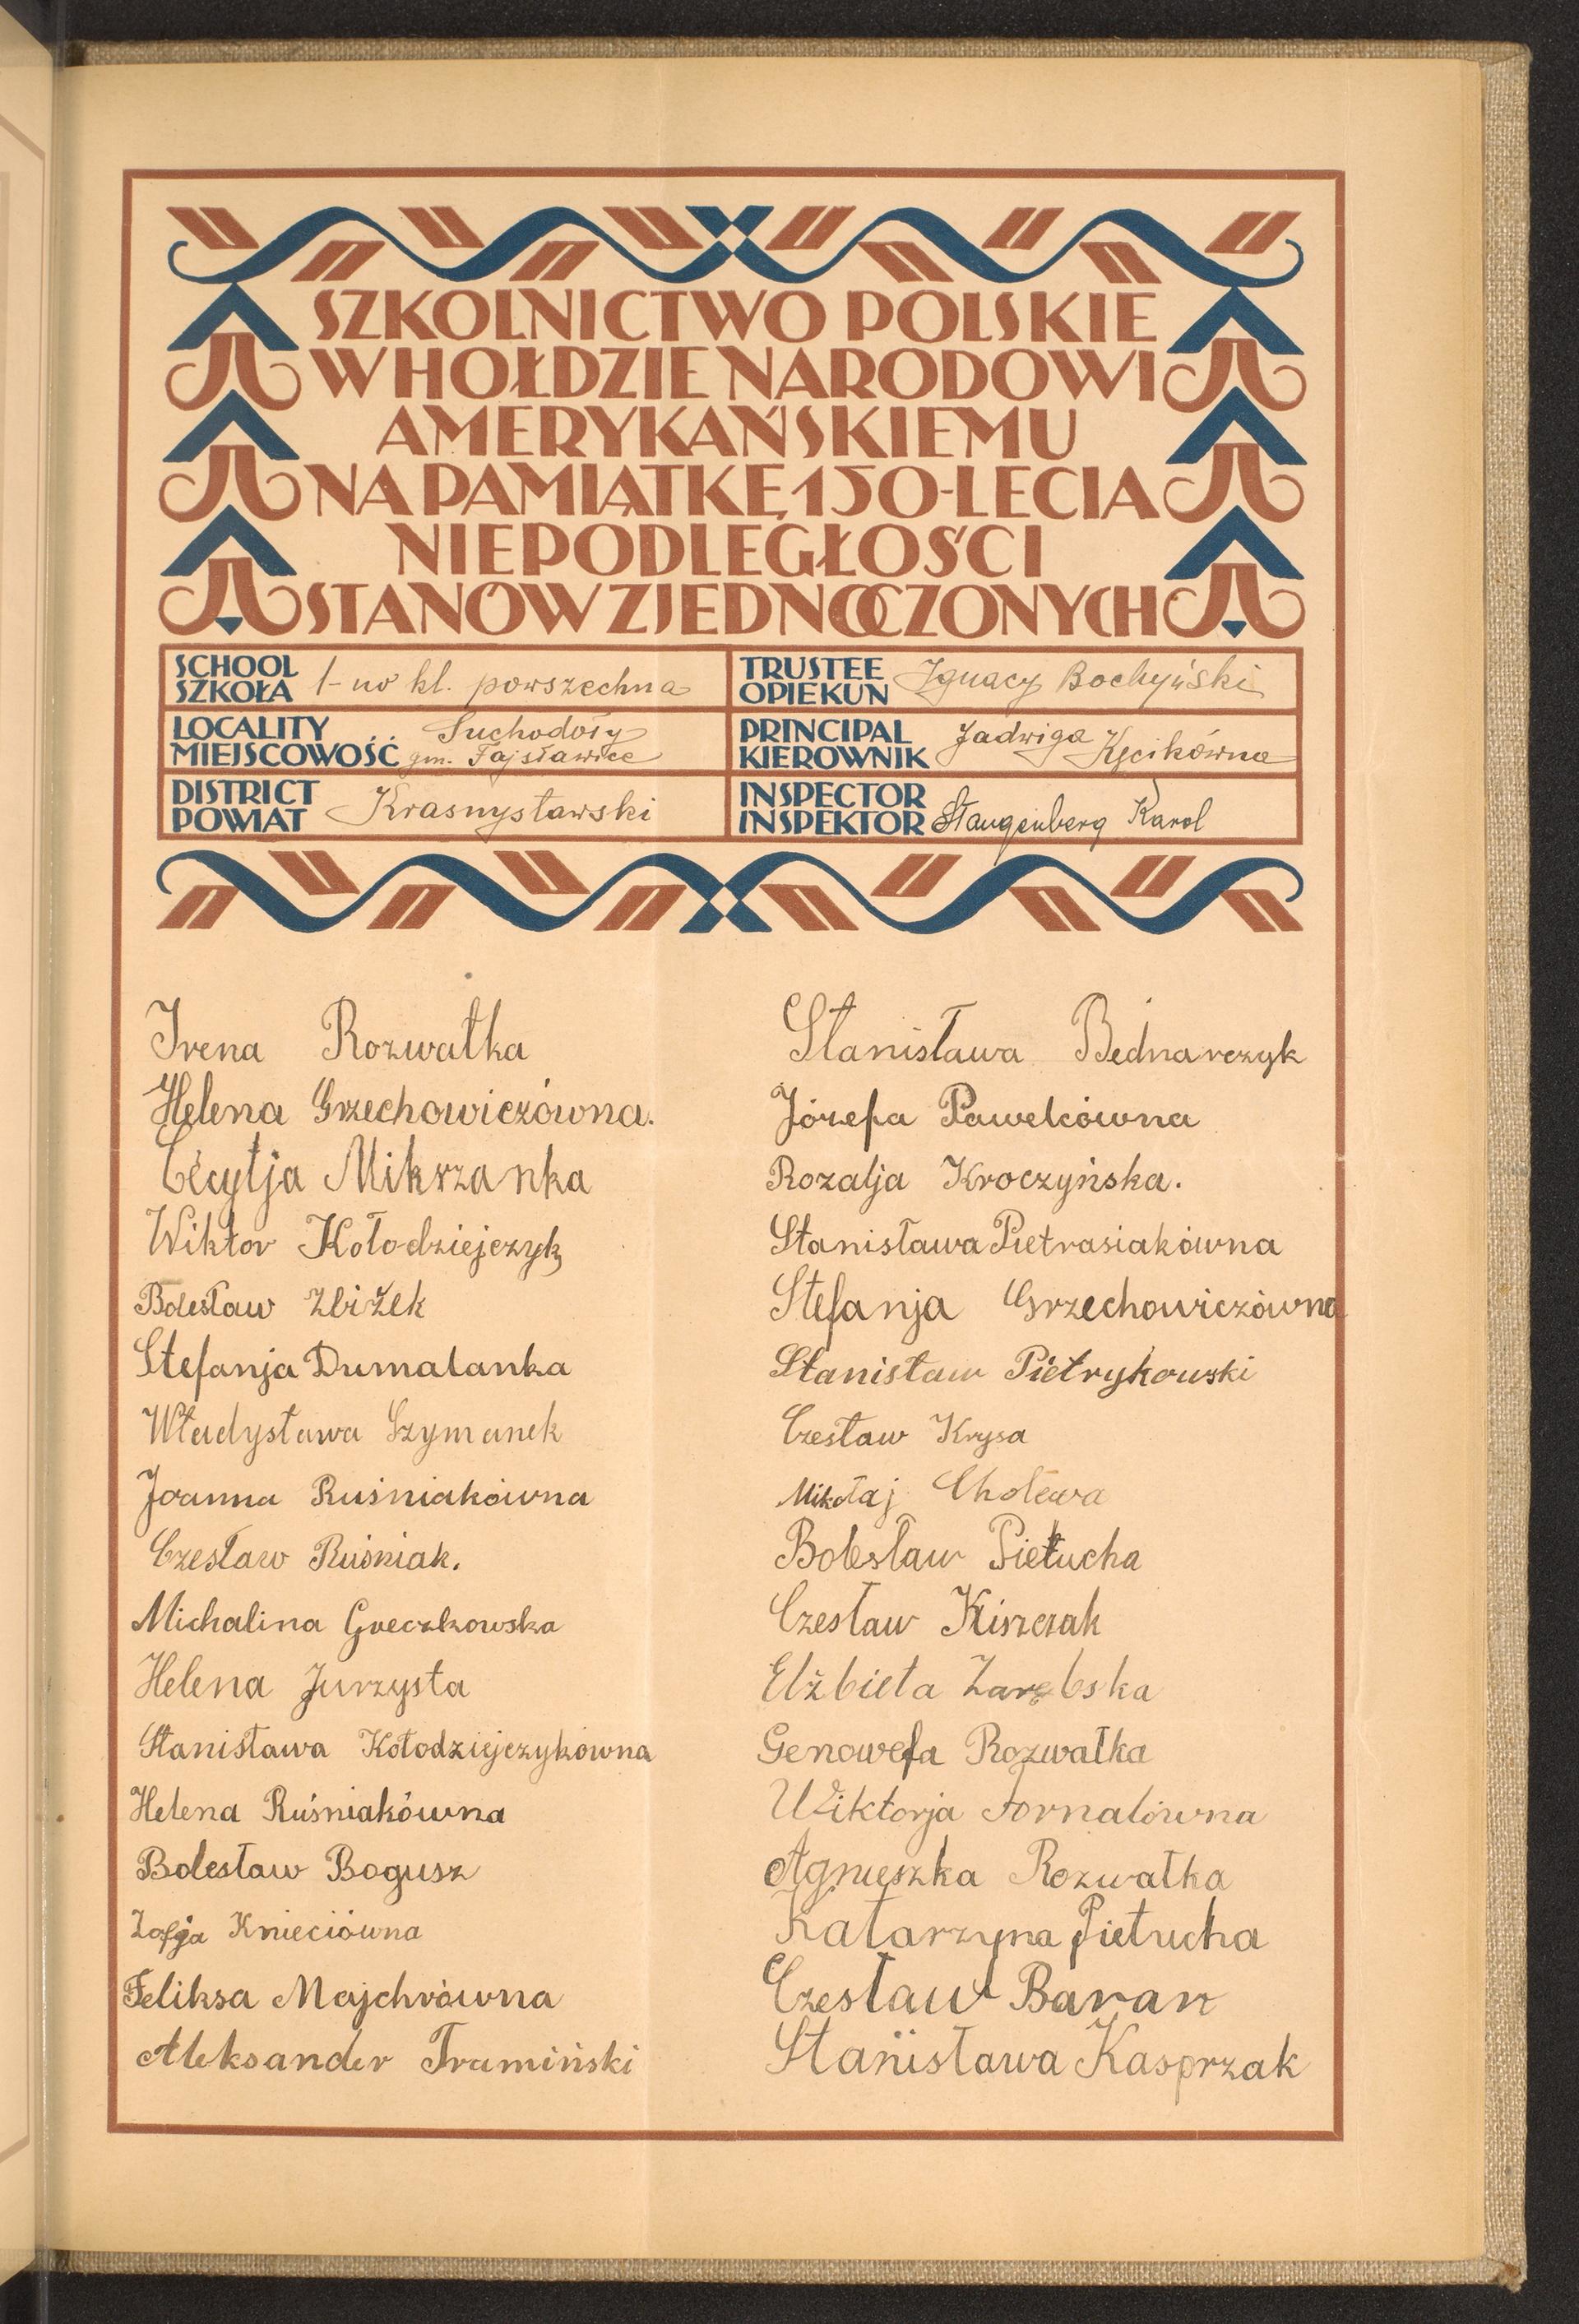 SZKOLNICTWO POLSKIE
W HOŁDZIE NARODOWI
AMERYKAŃSKIEMU
NA PAMIĄTKĘ 150-LECIA
NIEPODLEGŁOŚCI
STANÓW ZJEDNOCZONYCH
SCHOOL
SZKOŁA 1-no kl. powszechna
TRUSTEE
OPIEKUN Ignacy Bochyński
LOCALITY
MIEJSCOWOŚĆ Suchodoły
gm. Fajsławice
PRINCIPAL
KIEROWNIK Jadwiga Kęcikówna
DISTRICT
POWIAT Krasnystawski
INSPECTOR
INSPEKTOR Stangenberg Karol
Irena Rozwałka
Helena Grzechowiczówna.
Cecylja Mikrzanka
Wiktor Kołodziejczyk
Bolesław Zbiżek
Stefanja Dumalanka
Władysława Szymanek
Joanna Ruśniakówna
Czesław Ruśniak.
Michalina Greczkowska
Helena Jurzysta
Stanisława Kołodziejczykówna
Helena Ruśniakówna
Bolesław Bogusz
Zofja Knieciówna
Feliksa Majchrówna
Aleksander Tramiński
Stanisława Bednarczyk
Józefa Pawelcówna
Rozalja Kroczyńska.
Stanisława Pietrasiakówna
Stefanja Grzechowiczówna
Stanisław Pietrykowski
Czesław Krysa
Mikołaj Cholewa
Bolesław Piełucha
Czesław Kiszczak
Elżbieta Zarębska
Genowefa Rozwałka
Wiktorja Fornalówna
Agnieszka Rozwałka
Katarzyna Piełucha
Czesław Baran
Stanisława Kasprzak